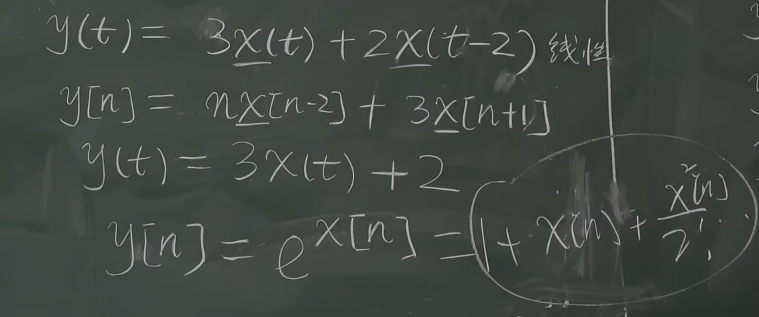 y(t) = 3x(t) + 2x(t-2) 线性
y[n] = nx[n-2] + 3x[n+1]
y(t) = 3x(t) + 2
y[n] = e^x[n] = 1 + x[n] + x²[n]/2!